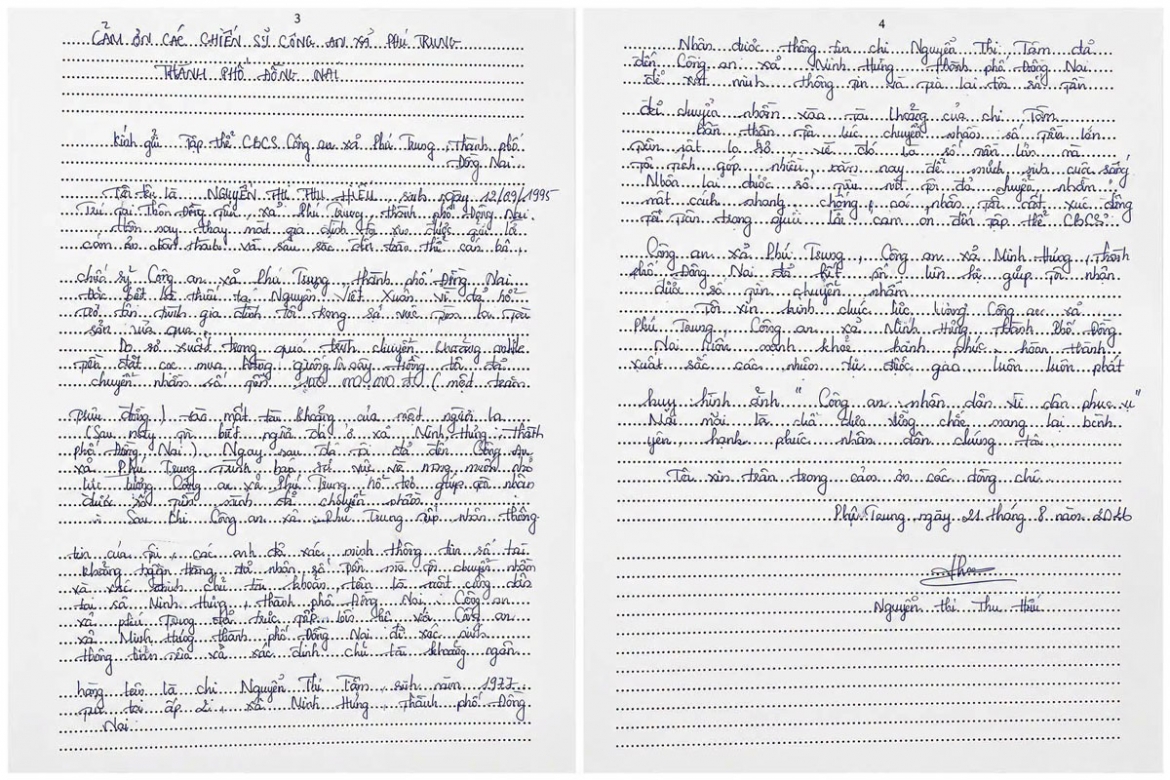 3
CẢM ƠN CÁC CHIẾN SỸ CÔNG AN XÃ PHÚ TRUNG
THÀNH PHỐ ĐỒNG NAI
Kính gửi Tập thể CBCS Công an xã Phú Trung, Thành phố
Đồng Nai.
Tên tôi là NGUYỄN THỊ THU HIẾU, sinh ngày 12/09/1995
Trú tại Thôn xã Phú Trung, thành phố Đồng Nai.
Hôm nay thay mặt gia đình tôi xin được gửi lời
cảm ơn chân thành và sâu sắc đến tập thể cán bộ,
chiến sỹ Công an xã Phú Trung, thành phố Đồng Nai
Đặc biệt là thiếu tá Nguyễn Viết Xuân vì đã hỗ
trợ tận tình gia đình tôi trong sự việc tìm lại tài
sản vừa qua.
Do sơ xuất trong quá trình chuyển khoản online
tiền đặt cọc mua giống tôi đã
chuyển nhầm số tiền 100.000.000 đ (một trăm
triệu đồng) vào một tài khoảng của một người lạ
(Sau này biết người đó ở xã Minh Hưng, thành
phố Đồng Nai). Ngay sau đó tôi đã đến Công an
xã Phú Trung trình báo sự việc và mong muốn nhờ
lực lượng Công an xã Phú Trung hỗ trợ giúp tôi nhận
được số tiền mình đã chuyển nhầm.
Sau khi Công an xã Phú Trung tiếp nhận thông
tin của tôi, các anh đã xác minh thông tin số tài
khoảng ngân hàng đã nhận số tiền mà tôi chuyển nhầm
và xác định chủ tài khoản tên là một công dân
tại xã Minh Hưng, thành phố Đồng Nai. Công an
xã Phú Trung đã trực tiếp liên hệ với Công an
xã Minh Hưng thành phố Đồng Nai để xác minh
thông tin xác định chủ tài khoảng ngân
hàng tên là chị Nguyễn Thị Tám, sinh năm 1977
trú tại ấp 2, xã Minh Hưng, Thành phố Đồng
Nai.
4
Nhận được thông tin chị Nguyễn Thị Tám đã
đến Công an xã Minh Hưng thành phố Đồng Nai
để xác minh thông tin và trả lại tôi số tiền
đã chuyển nhầm vào tài khoảng của chị Tám.
Bản thân tôi lúc chuyển nhầm số tiền lớn
trên rất lo sợ, vì đó là số tiền lớn mà
tôi tích góp nhiều năm nay để mưu sinh cuộc sống
Nhận lại được số tiền mà tôi đã chuyển nhầm
một cách nhanh chóng, tôi rất xúc động
tôi trân trọng gửi lời cảm ơn đến tập thể CBCS
Công an xã Phú Trung, Công an xã Minh Hưng, thành
phố Đồng Nai đã liên hệ giúp tôi nhận
được số tiền chuyển nhầm
Tôi xin kính chúc lực lượng Công an xã
Phú Trung, Công an xã Minh Hưng thành phố Đồng
Nai luôn mạnh khoẻ, hạnh phúc, hoàn thành
xuất sắc các nhiệm vụ được giao, luôn luôn phát
huy hình ảnh "Công an nhân dân vì dân phục vụ"
Mãi mãi là chỗ dựa vững chắc, mang lại bình
yên, hạnh phúc nhân dân chúng tôi.
Tôi xin trân trọng cảm ơn các đồng chí.
Phú Trung, ngày 21 tháng 8 năm 2026
Nguyễn Thị Thu Hiếu